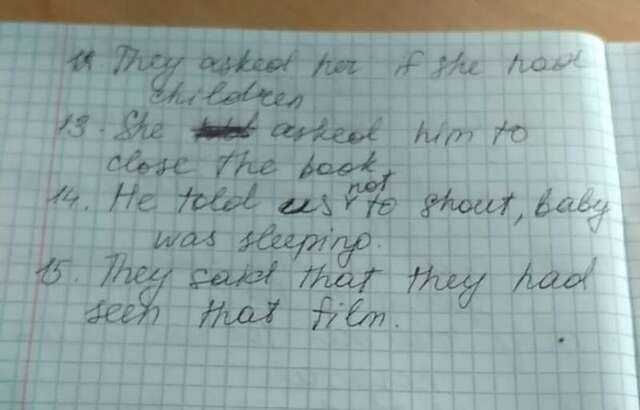 12 They asked her if she had
children
13. She asked him to
close the book
14. He told us not to shout, baby
was sleeping.
15. They said that they had
seen that film.